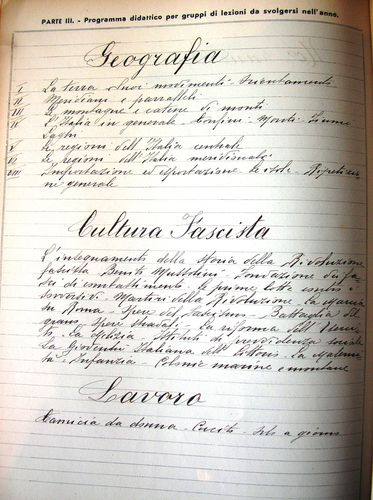 PARTE III. - Programma didattico per gruppi di lezioni da svolgersi nell'anno.
Geografia
I La terra e suoi movimenti - Orientamento
II Meridiani e paralleli
III Le montagne e catene di monti
IV L'Italia in generale - Confini - Monti - Fiumi
Laghi
V Le regioni dell'Italia centrale
VI Le regioni dell'Italia meridionale
VII Importazione ed esportazione Le isole - Ripetizio-
ne generale
Cultura Fascista
L'insegnamento della storia della Rivoluzione
fascista Benito Mussolini - Fondazione dei fa-
sci di combattimento - le prime lotte contro i
sovversivi - Martiri della Rivoluzione - La Marcia
su Roma - Opere del fascismo - Battaglia del
grano - Opere stradali - La riforma dell'
La Milizia - Istituti di previdenza sociale
La Gioventù Italiana del Littorio - La Materni-
tà e Infanzia - Colonie marine e montane
Lavoro
Camicia da donna - Cucito - a giorno